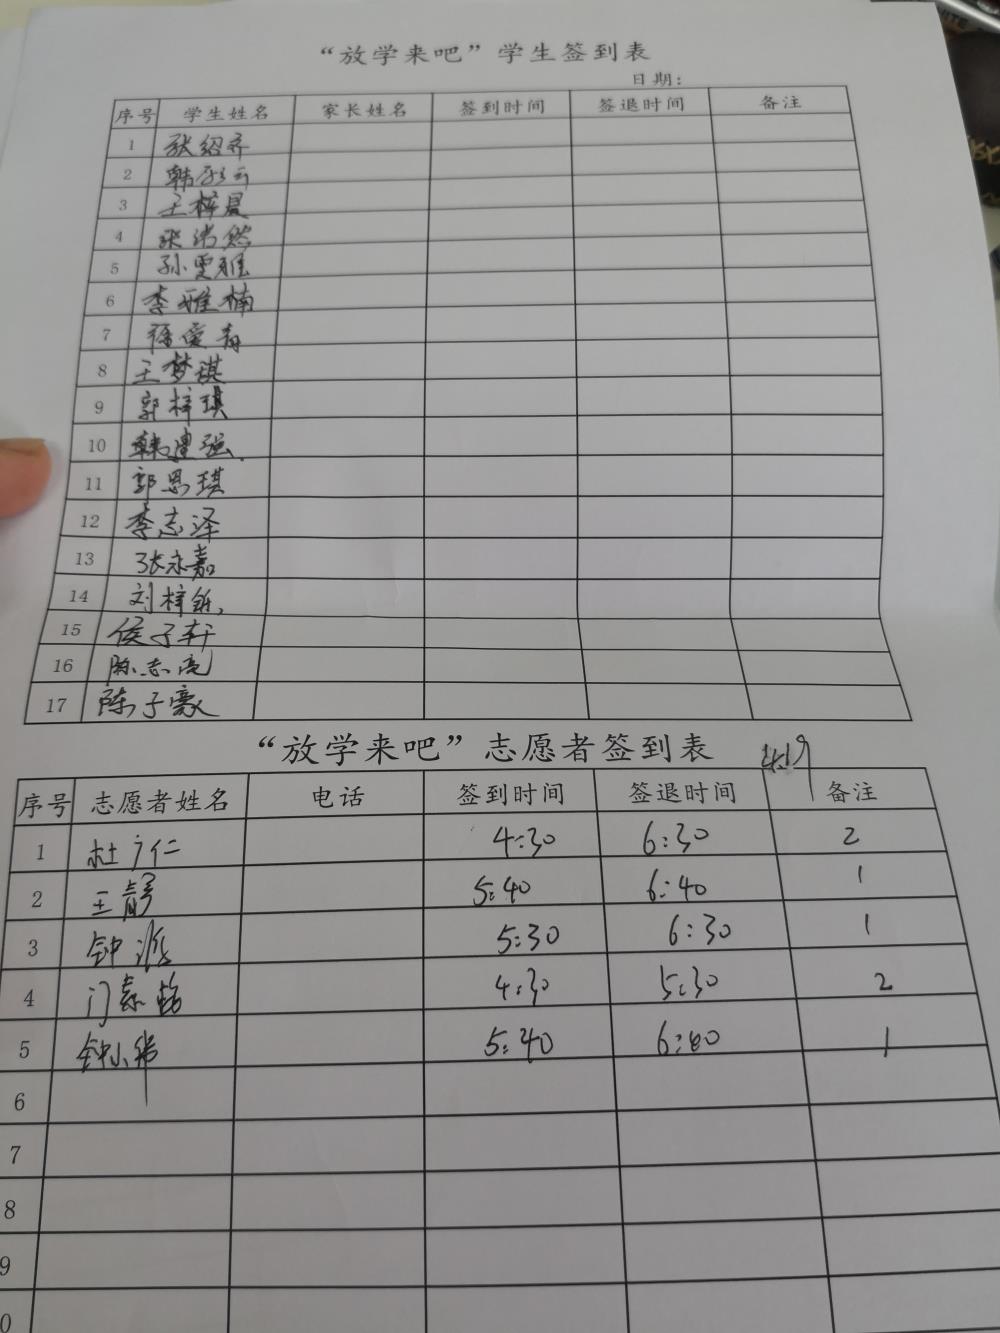 “放学来吧”学生签到表
日期：
序号 学生姓名 家长姓名 签到时间 签退时间 备注
1 张绍齐
2 韩彤云
3 王梓晨
4 张浩然
5 孙雯雅
6 李雅楠
7 爱青
8 王梦琪
9 郭梓琪
10 韩建强
11 郭思琪
12 李志泽
13 张永嘉
14 刘梓
15 侯子轩
16 陈志亮
17 陈子豪
“放学来吧”志愿者签到表 4.19
序号 志愿者姓名 电话 签到时间 签退时间 备注
1 杜广仁 4:30 6:30 2
2 王静 5:40 6:40 1
3 钟 5:30 6:30 1
4 门 4:30 5:30 2
5 钟小 5:40 6:40 1
6
7
8
9
0